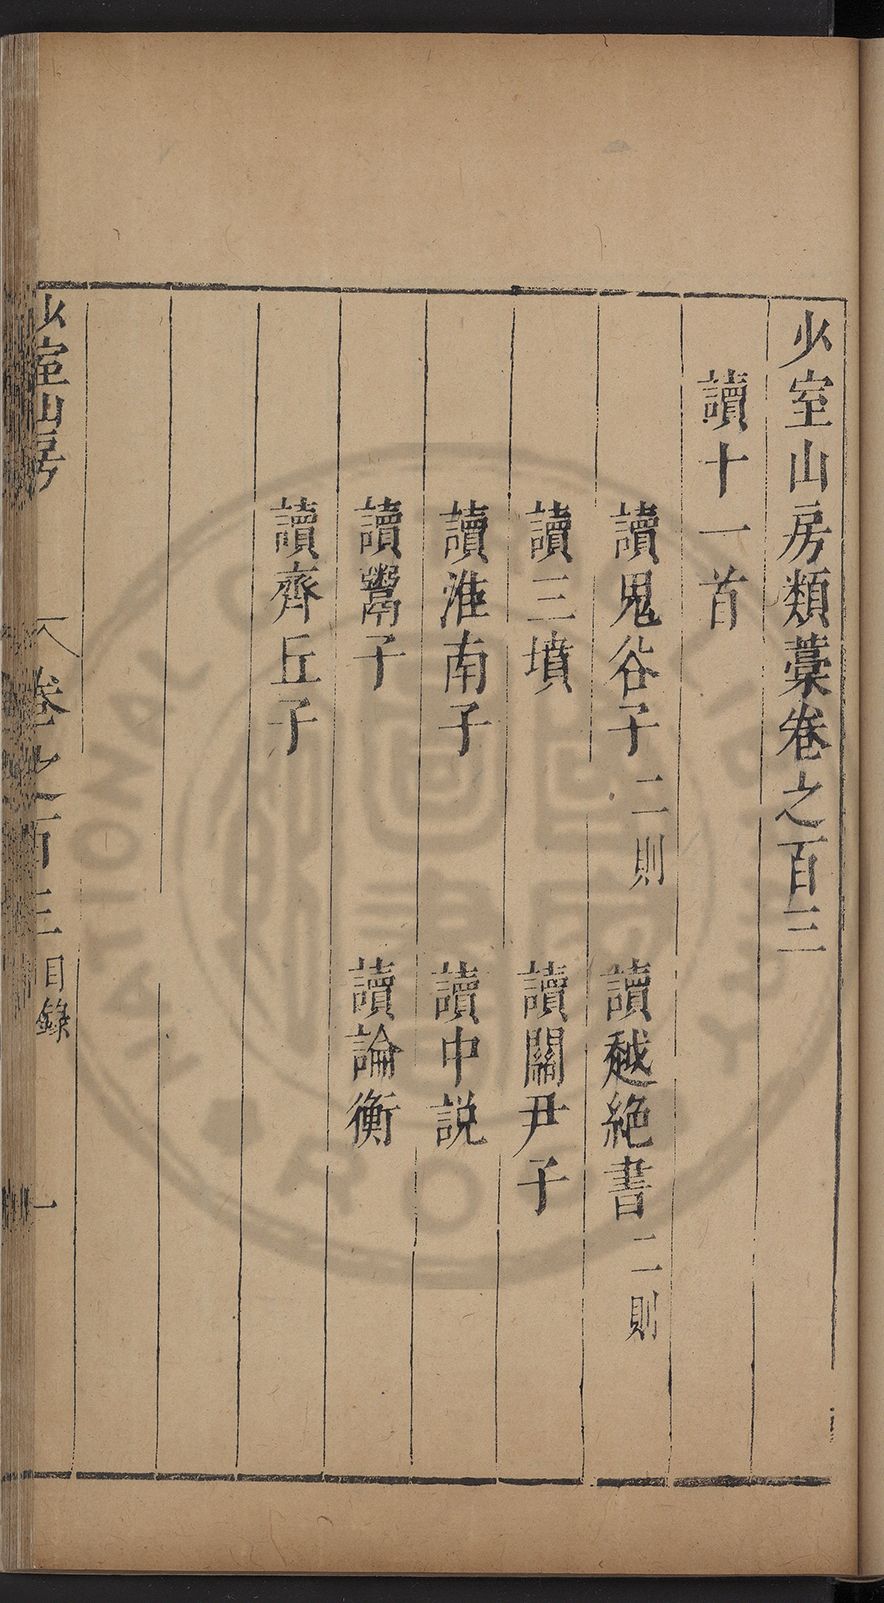 少室山房類藁卷之百三
讀十一首
讀鬼谷子 二則 讀越絶書 二則
讀三墳 讀關尹子
讀淮南子 讀中説
讀鬻子 讀論衡
讀齊丘子
少室山房 卷之百三 目錄 一